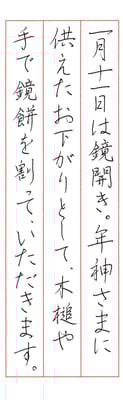 一月十一日は鏡開き。年神さまに
供えたお下がりとして、木槌や
手で鏡餅を割って、いただきます。